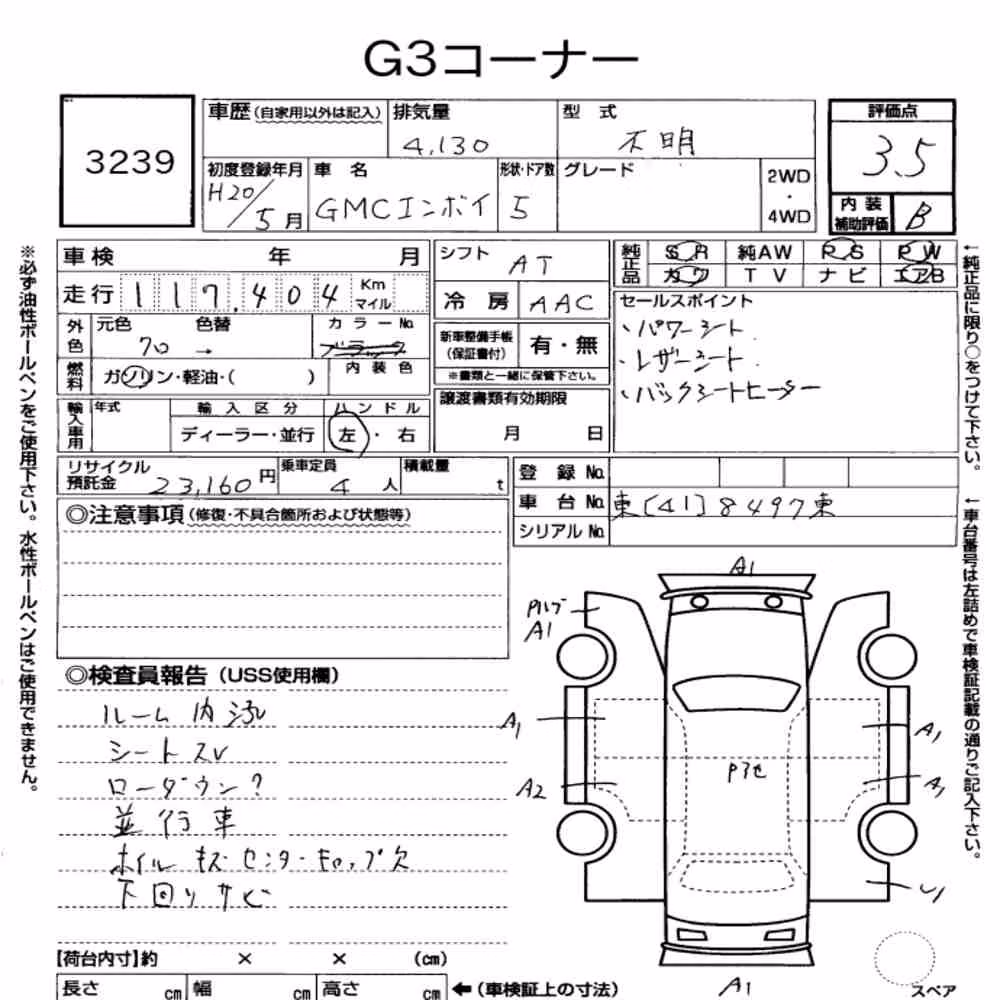 G3コーナー
3239
車歴(自家用以外は記入)
排気量
4,130
型式
不明
評価点
3.5
初度登録年月
H20/5月
車名
GMCエンボイ
形状・ドア数
5
グレード
2WD
・
4WD
内装
補助評価
B
車検 年 月
走行 117,404 Km
マイル
シフト
AT
冷房
AAC
純正品
SR 純AW PS PW
カワ TV ナビ エアB
外色
元色 色替
カラーNo.
70 →
ブラック
燃料
ガソリン・軽油・( )
内装色
新車整備手帳
(保証書付)
有・無
※書類と一緒に保管下さい。
セールスポイント
・パワーシート
・レザーシート
・バックシートヒーター
輸入車用
年式
輸入区分
ディーラー・並行
ハンドル
左・右
譲渡書類有効期限
月 日
リサイクル
預託金
23,160円
乗車定員
4人
積載量
t
登録No.
車台No.
東[41]8497東
シリアルNo.
◎注意事項(修復・不具合箇所および状態等)
◎検査員報告(USS使用欄)
ルーム内汚
シートスレ
ローダウン?
並行車
ホイルキズ センターキャップ欠
下回りサビ
A1
A1
A1
A2
A1
A1
A1
【荷台内寸】約 × × (cm)
長さ cm
幅 cm
高さ cm
←(車検証上の寸法)
スペア
※必ず油性ボールペンをご使用下さい。水性ボールペンはご使用できません。
←純正品に限り○をつけて下さい。
←車台番号は左詰めで車検証記載の通りご記入下さい。